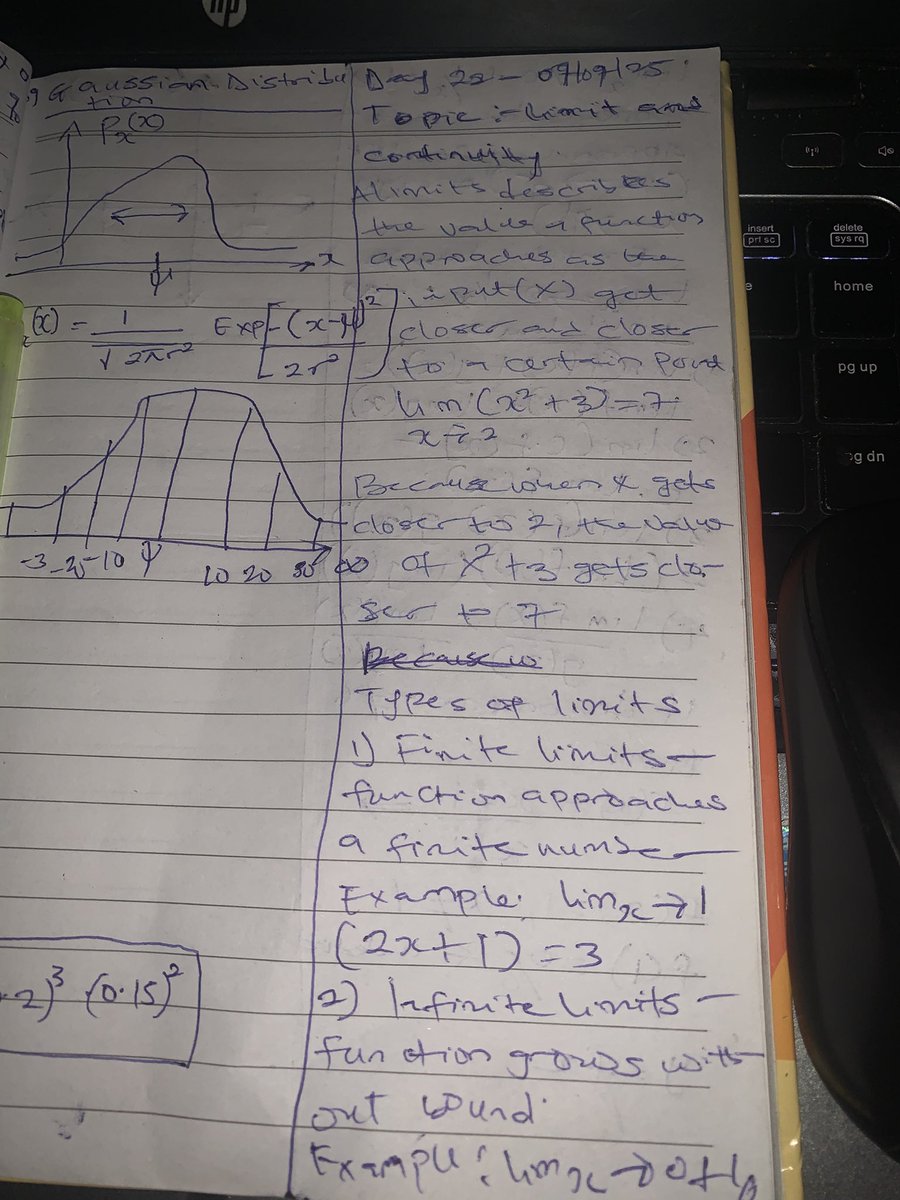 hp
Gaussian Distribu
tion
Px(x)
x
(x) = 1 / √2πσ² Exp[-(x-μ)² / 2σ²]
-3 -20 -10 μ 10 20 30 ∞
2)³ (0.15)²
Day 22 - 09/09/25
Topic :- limit and
continuity
A limits describes
the value a function
approaches as the
input (x) get
closer and closer
to a certain point
lim (x² + 3) = 7
x → 2
Because when x gets
closer to 2, the value
of x² + 3 gets clo-
ser to 7
Types of limits
1) Finite limits -
function approaches
a finite number
Example: lim x → 1
(2x + 1) = 3
2) Infinite limits -
function grows with
out bound.
Example: lim x → 0+
insert
prt sc
delete
sys rq
home
pg up
pg dn